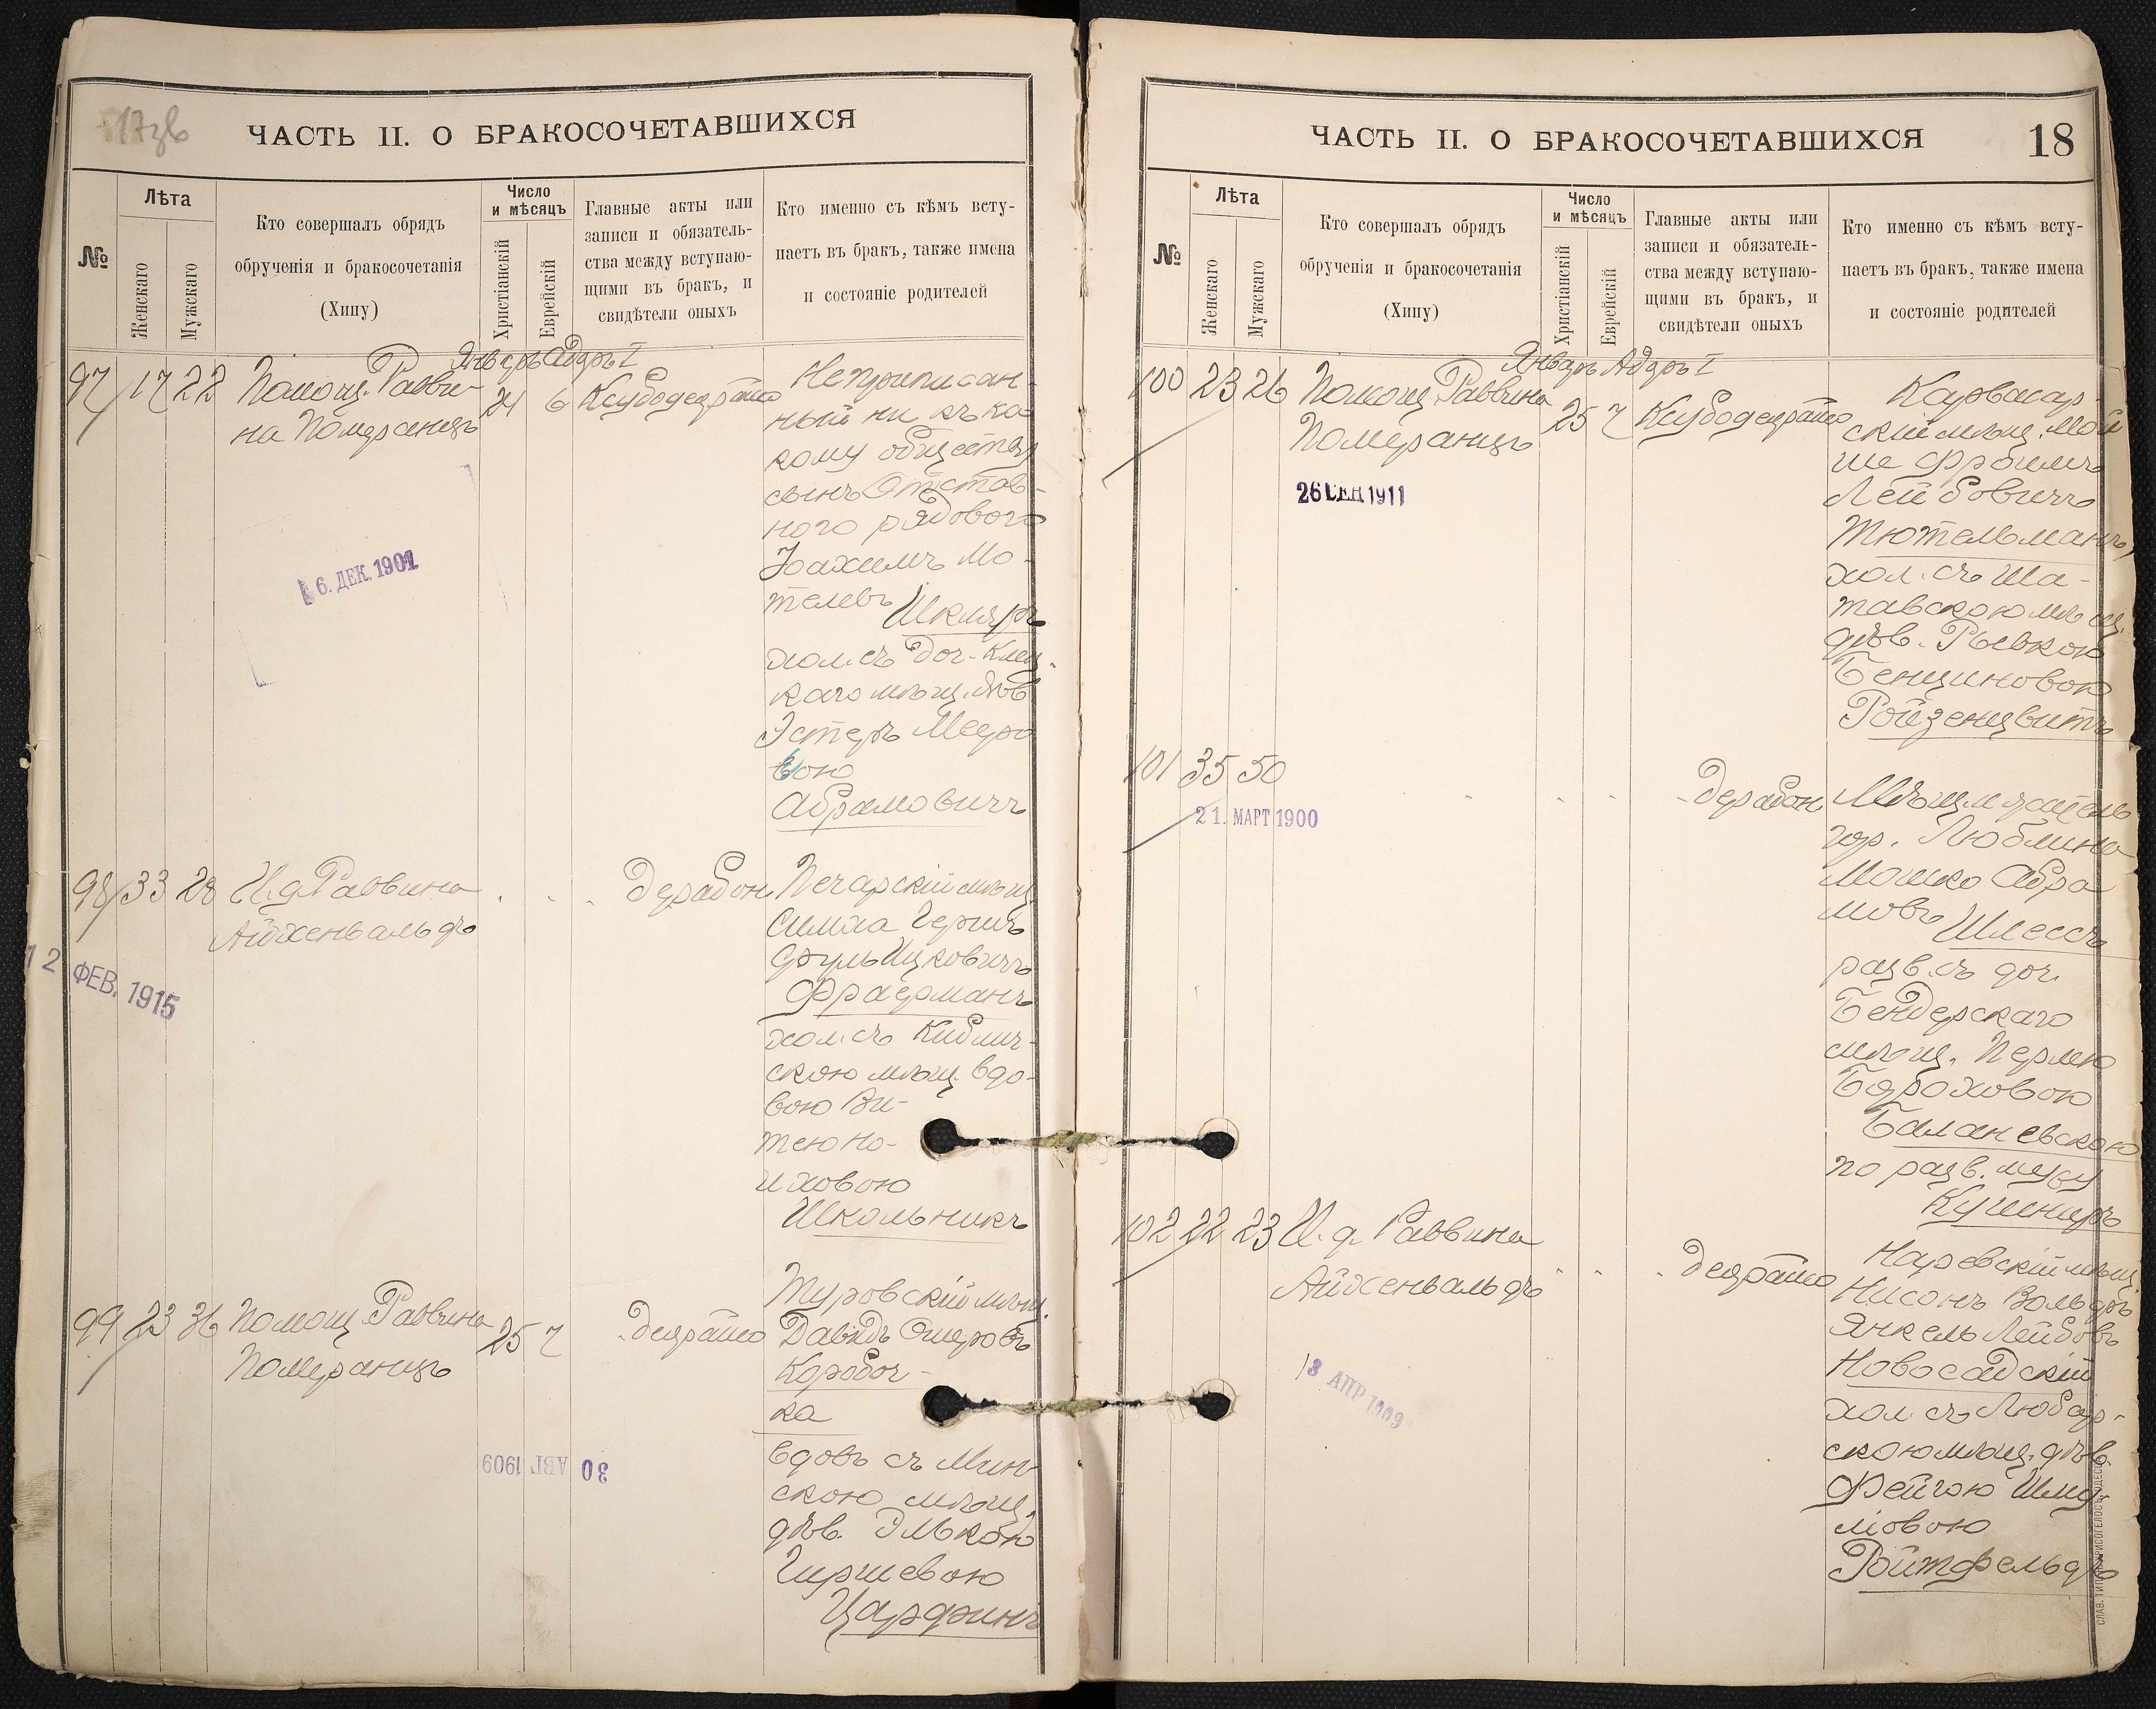 17зв
ЧАСТЬ II. О БРАКОСОЧЕТАВШИХСЯ
№
Лѣта
Женскаго
Мужскаго
Кто совершалъ обрядъ
обрученія и бракосочетанія
(Хипу)
Число
и мѣсяцъ
Христіанскій
Еврейскій
Главные акты или
записи и обязатель-
ства между вступаю-
щими въ бракъ, и
свидѣтели оныхъ
Кто именно съ кѣмъ всту-
паетъ въ бракъ, также имена
и состояніе родителей
Январь Адаръ I
97 17 22 Помощ. Равви-
на Померанцъ
24 6
Неприписан-
ный ни къ ка-
кому обществу
сынъ Отстав-
ного рядового
Іоахимъ Мо-
телевъ Шкляръ
хол. съ доч. Клец-
каго мѣщ. дѣв.
Эстеръ Мееро
вою
Абрамовичъ
6. ДЕК. 1901
98 33 28 И. д. Раввина
Айхенвальдъ
Печарскій мѣщ.
Симха Гершъ
Сруль Ицковичъ
Фраерманъ
хол. съ Кублич-
скою мѣщ. вдо-
вою
Школьникъ
12 ФЕВ. 1915
99 23 36 Помощ. Раввина
Померанцъ
25 7
Туровскій мѣщ.
Давидъ Ошеровъ
Коробоч-
ка
вдовъ съ Мин-
скою мѣщ.
дѣв. Элькою
Гиршевою
30 АВГ 1909
ЧАСТЬ II. О БРАКОСОЧЕТАВШИХСЯ 18
№
Лѣта
Женскаго
Мужскаго
Кто совершалъ обрядъ
обрученія и бракосочетанія
(Хипу)
Число
и мѣсяцъ
Христіанскій
Еврейскій
Главные акты или
записи и обязатель-
ства между вступаю-
щими въ бракъ, и
свидѣтели оныхъ
Кто именно съ кѣмъ всту-
паетъ въ бракъ, также имена
и состояніе родителей
Январь Адаръ I
100 23 26 Помощ Раввина
Померанцъ
25 7
Карвасар-
скій мѣщ. Мой
ше Фроимъ
Лейбовичъ
Тютельманъ,
хол. съ Ша-
тавскою мѣщ.
дѣв. Рывкою
Бенціновою
Ройзенцвитъ
26 СЕН 1911
101 35 50
гор. Люблина
Мошко Абра
мовъ Шлессъ
разв. съ доч.
Бендерскаго
мѣщ. Перлею
Бороховою
Баланевскою
по разв. мужу
Кушниръ
21. МАРТ 1900
102 22 23 И. д. Раввина
Айхенвальдъ
Наревскій мѣщ.
Нисонъ Вольфъ
Янкель Лейбовъ
Новосадскій
хол. съ Любар-
скою мѣщ. дѣв.
Фейгою Шму-
ліовою
Ройтфельдъ
13 АПР 1909